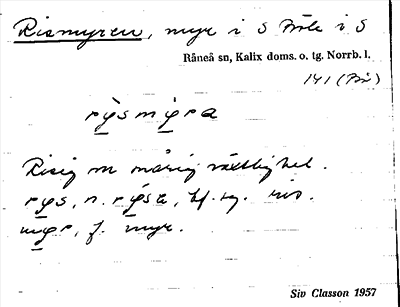 Rismyren, myr i S Prästh i S
Råneå sn, Kalix doms. o. tg. Norrb. l.
141 (Pr)
rỳsmýra
Risig m mårig växtlighet.
rys, n. rýse, bf. sg. ris.
myr, f. myr.
Siv Classon 1957